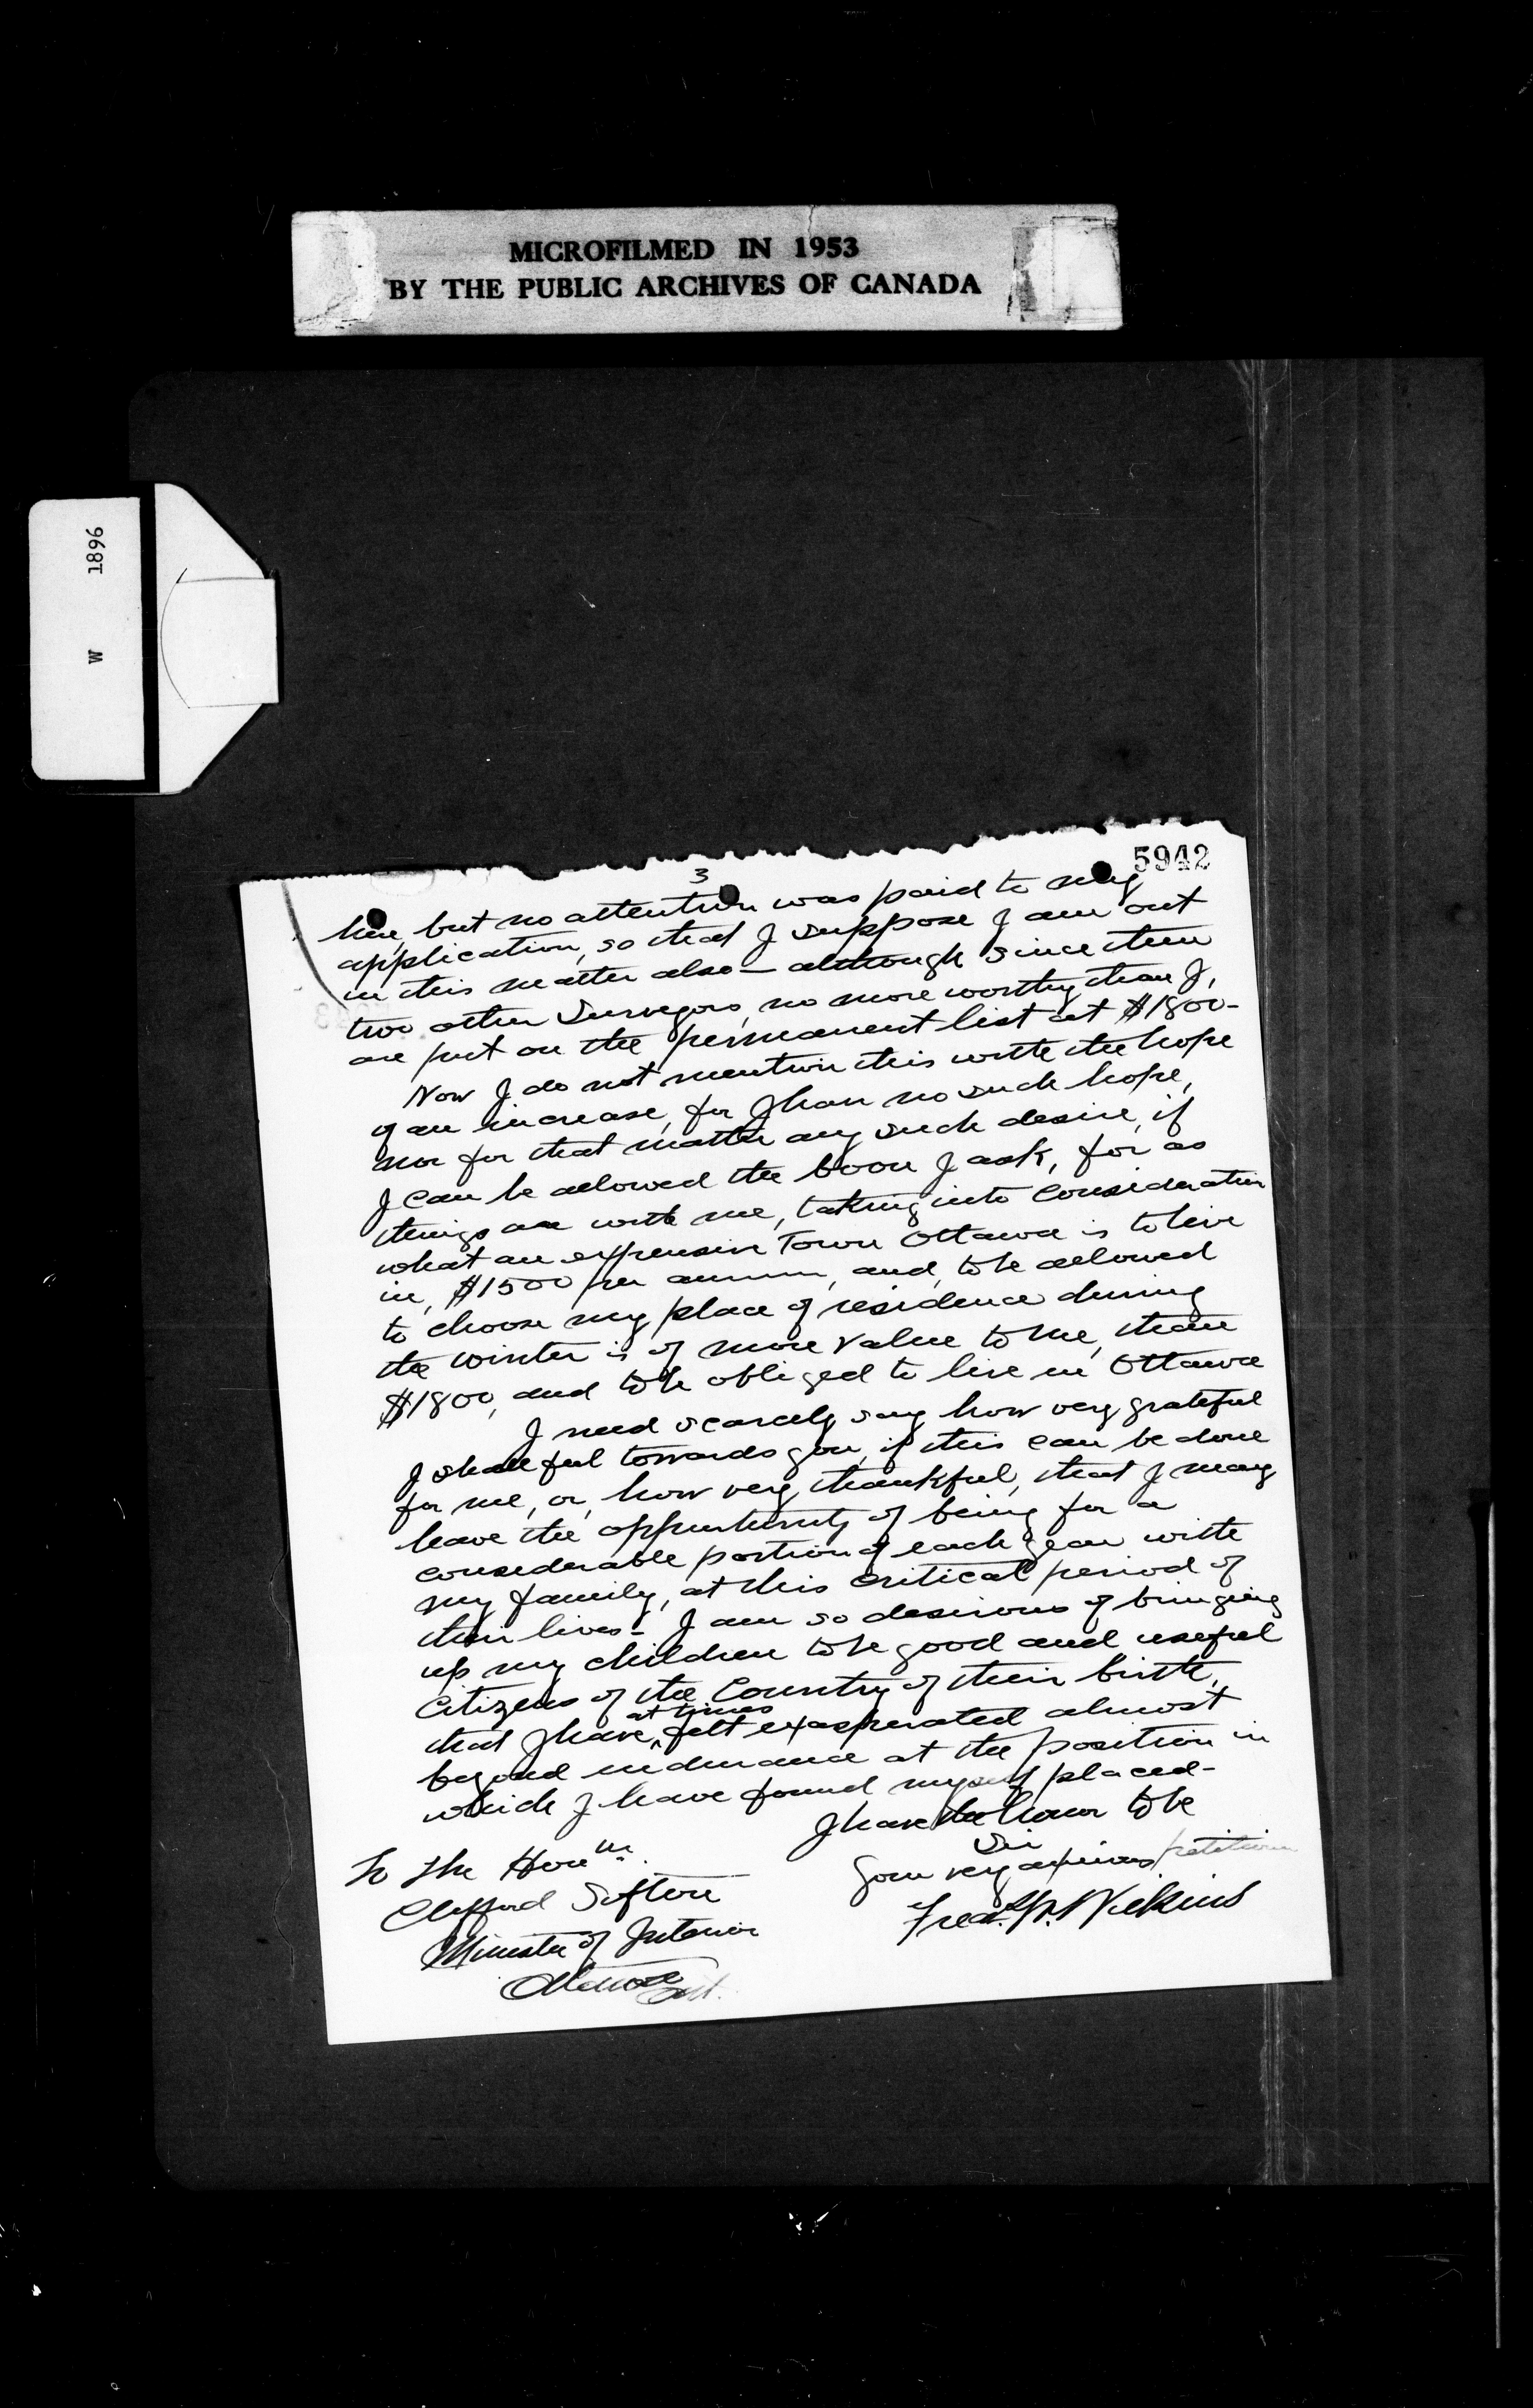 MICROFILMED IN 1953
BY THE PUBLIC ARCHIVES OF CANADA
W 1896
5942
3
but no attention was paid to my
application, so that I suppose I am out
in this matter also — although since then
two other Surveyors, no more worthy than I,
are put on the permanent list at $1800 -
Now I do not mention this with the hope
of an increase, for I have no such hope,
nor for that matter any such desire, if
I can be allowed the boon I ask, for as
things are with me, taking into Consideration
what an expensive Town Ottawa is to live
in, $1500 per annum, and, to be allowed
to choose my place of residence during
the winter is of more value to me, than
$1800, and to be obliged to live in Ottawa
I need scarcely say how very grateful
I shall feel towards you, if this can be done
for me, or, how very thankful, that I may
have the opportunity of being for a
considerable portion of each year with
my family, at this critical period of
their lives - I am so desirous of bringing
up my children to be good and useful
Citizens of the Country of their birth,
that I have at times felt exasperated almost
beyond endurance at the position in
which I have found myself placed -
I have the honor to be
Sir
Your very anxious petitioner
Fred. W. Wilkins
To The Honble.
Clifford Sifton
Minister of Interior
Ottawa Ont.